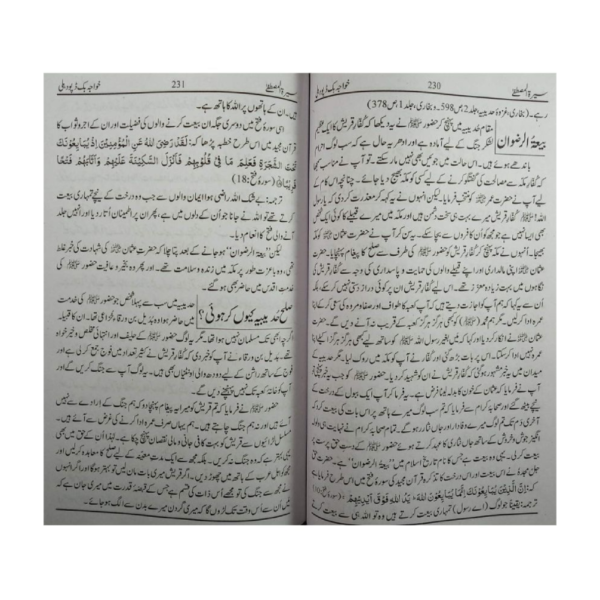 سیرۃ المصطفیٰ 230 خواجہ بک ڈپو دہلی
رہے۔ (بخاری، غزوۂ حدیبیہ جلد2، ص598۔ و بخاری، جلد1، ص378)
بیعۃ الرضوان
مقام حدیبیہ میں پہنچ کر حضور ﷺ نے یہ دیکھا کہ کفار قریش کا ایک عظیم
لشکر جنگ کے لیے آمادہ ہے اور ادھر یہ حال ہے کہ سب لوگ احرام
باندھے ہوئے ہیں۔ اس حالت میں جوئیں بھی نہیں مار سکتے۔ تو آپ نے مناسب سمجھا
کہ کفار مکہ سے مصالحت کی گفتگو کرنے کے لیے کسی کو مکہ بھیج دیا جائے۔ چنانچہ اس کام کے
لیے آپ نے حضرت عمر کو منتخب فرمایا۔ لیکن انہوں نے یہ کہہ کر معذرت کر دی کہ یا رسول اللہ!
کفار قریش میرے بہت ہی سخت دشمن ہیں اور مکہ میں میرے قبیلے کا کوئی ایک شخص
بھی ایسا نہیں ہے جو مجھ کو ان کافروں سے بچا سکے۔ یہ سن کر آپ نے حضرت عثمان کو مکہ
بھیجا۔ انہوں نے مکہ پہنچ کر کفار قریش کو حضور ﷺ کی طرف سے صلح کا پیغام پہنچایا۔ حضرت
عثمان اپنی مالداری اور اپنے قبیلے والوں کی حمایت و پاسداری کی وجہ سے کفار قریش کی
نگاہوں میں بہت زیادہ معزز تھے۔ اس لیے کفار قریش ان پر کوئی دراز دستی نہیں کر سکے۔ بلکہ
ان سے یہ کہا کہ ہم آپ کو اجازت دیتے ہیں کہ آپ کعبہ کا طواف اور صفا و مروہ کی سعی کر کے اپنا
عمرہ ادا کر لیں۔ مگر ہم محمد ( ) کو کبھی ہرگز ہرگز کعبہ کے قریب نہ آنے دیں گے۔ حضرت
عثمان نے انکار کر دیا اور کہا کہ میں بغیر رسول اللہ ﷺ کو ساتھ لیے کبھی ہرگز ہرگز اکیلے اپنا
عمرہ نہیں ادا کر سکتا۔ اس پر بات بڑھ گئی اور کفار نے آپ کو مکہ میں روک لیا۔ مگر حدیبیہ کے
میدان میں یہ خبر مشہور ہو گئی کہ کفار قریش نے ان کو شہید کر دیا۔ حضور ﷺ کو جب یہ خبر پہنچی تو
آپ نے فرمایا کہ عثمان کے خون کا بدلہ لینا فرض ہے۔ یہ فرما کر آپ ایک ببول کے درخت کے نیچے
بیٹھ گئے اور صحابہ کرام سے فرمایا کہ تم سب لوگ میرے ہاتھ پر اس بات کی بیعت کرو کہ
آخری دم تک تم لوگ میرے وفادار اور جاں نثار رہو گے۔ تمام صحابہ کرام نے نہایت ہی ولولہ
انگیز جوش و خروش کے ساتھ جاں نثاری کا عہد کرتے ہوئے حضور ﷺ کے دست حق پرست پر
بیعت کر لی۔ یہی وہ بیعت ہے جس کا نام تاریخ اسلام میں "بیعۃ الرضوان" ہے۔ حضرت حق
جل مجدہ نے اس بیعت اور اس درخت کا تذکرہ قرآن مجید کی سورۂ فتح میں اس طرح فرمایا ہے
کہ: اِنَّ الَّذِيْنَ يُبَايِعُوْنَكَ اِنَّمَا يُبَايِعُوْنَ اللّٰهَ ؕ يَدُ اللّٰهِ فَوْقَ اَيْدِيْهِمْ (سورۂ فتح:10)
ترجمہ: یقیناً جو لوگ (اے رسول) تمہاری بیعت کرتے ہیں وہ تو اللہ ہی سے بیعت کرتے
سیرۃ المصطفیٰ 231 خواجہ بک ڈپو دہلی
ہیں۔ ان کے ہاتھوں پر اللہ کا ہاتھ ہے۔
اسی سورۂ فتح میں دوسری جگہ ان بیعت کرنے والوں کی فضیلت اور ان کے اجر و ثواب کا
قرآن مجید میں اس طرح خطبہ پڑھا کہ: لَقَدْ رَضِيَ اللّٰهُ عَنِ الْمُؤْمِنِيْنَ اِذْ يُبَايِعُوْنَكَ
تَحْتَ الشَّجَرَةِ فَعَلِمَ مَا فِيْ قُلُوْبِهِمْ فَاَنْزَلَ السَّكِيْنَةَ عَلَيْهِمْ وَاَثَابَهُمْ فَتْحًا
قَرِيْبًا (سورۂ فتح:18)
ترجمہ: بے شک اللہ راضی ہوا ایمان والوں سے جب وہ درخت کے نیچے تمہاری بیعت
کرتے تھے تو اللہ نے جانا جو اُن کے دلوں میں ہے، پھر ان پر اطمینان اتار دیا اور انہیں جلد
آنے والی فتح کا انعام دیا۔
لیکن "بیعۃ الرضوان" ہو جانے کے بعد پتا چلا کہ حضرت عثمان کی شہادت کی خبر غلط
تھی۔ وہ باعزت طور پر مکہ میں زندہ و سلامت تھے۔ اور پھر وہ بخیر و عافیت حضور ﷺ کی
خدمت اقدس میں حاضر بھی ہو گئے۔
صلح حدیبیہ کیوں کر ہوئی؟
حدیبیہ میں سب سے پہلا شخص جو حضور ﷺ کی خدمت
میں حاضر ہوا وہ بدیل بن ورقاء خزاعی تھا۔ ان کا قبیلہ
اگرچہ ابھی تک مسلمان نہیں ہوا تھا۔ مگر یہ لوگ حضور ﷺ کے حلیف اور انتہائی مخلص و خیر خواہ
تھے۔ بدیل بن ورقاء نے آپ کو خبر دی کہ کفار قریش نے کثیر تعداد میں فوج جمع کر لی ہے اور
فوج کے ساتھ راشن کے لیے دودھ والی اونٹنیاں بھی ہیں۔ یہ لوگ آپ سے جنگ کریں گے اور
آپ کو خانہ کعبہ تک نہیں پہنچنے دیں گے۔
حضور ﷺ نے فرمایا کہ تم قریش کو میرا یہ پیغام پہنچا دو کہ ہم جنگ کے ارادے سے نہیں
آئے ہیں اور نہ ہم جنگ چاہتے ہیں۔ ہم یہاں صرف عمرہ ادا کرنے کی غرض سے آئے ہیں۔
مسلسل لڑائیوں سے قریش کو بہت کافی جانی و مالی نقصان پہنچ چکا ہے۔ لہٰذا ان کے حق میں بھی
یہی بہتر ہے کہ وہ جنگ نہ کریں۔ بلکہ مجھ سے ایک مدت معینہ تک کے لیے صلح کا معاہدہ کر لیں اور
مجھ کو اہل عرب کے ہاتھ میں چھوڑ دیں۔ اگر قریش میری بات مان لیں تو بہتر ہو گا اور اگر انہوں
نے مجھ سے جنگ کی تو مجھے اُس ذات کی قسم ہے جس کے قبضۂ قدرت میں میری جان ہے کہ
میں ان سے اُس وقت تک لڑوں گا کہ میری گردن میرے بدن سے الگ ہو جائے۔